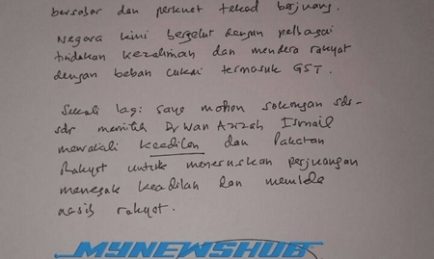 bersabar dan perkuat tekad berjuang.
Negara kini bergelut dengan pelbagai
tindakan kezaliman dan mendera rakyat
dengan beban cukai termasuk GST.
Sekali lagi saya mohon sokongan sdr-
sdr memilih Dr Wan Azizah Ismail
mewakili Keadilan dan Pakatan
Rakyat untuk meneruskan perjuangan
menegak keadilan dan membela
nasib rakyat.
MYNEWSHUB